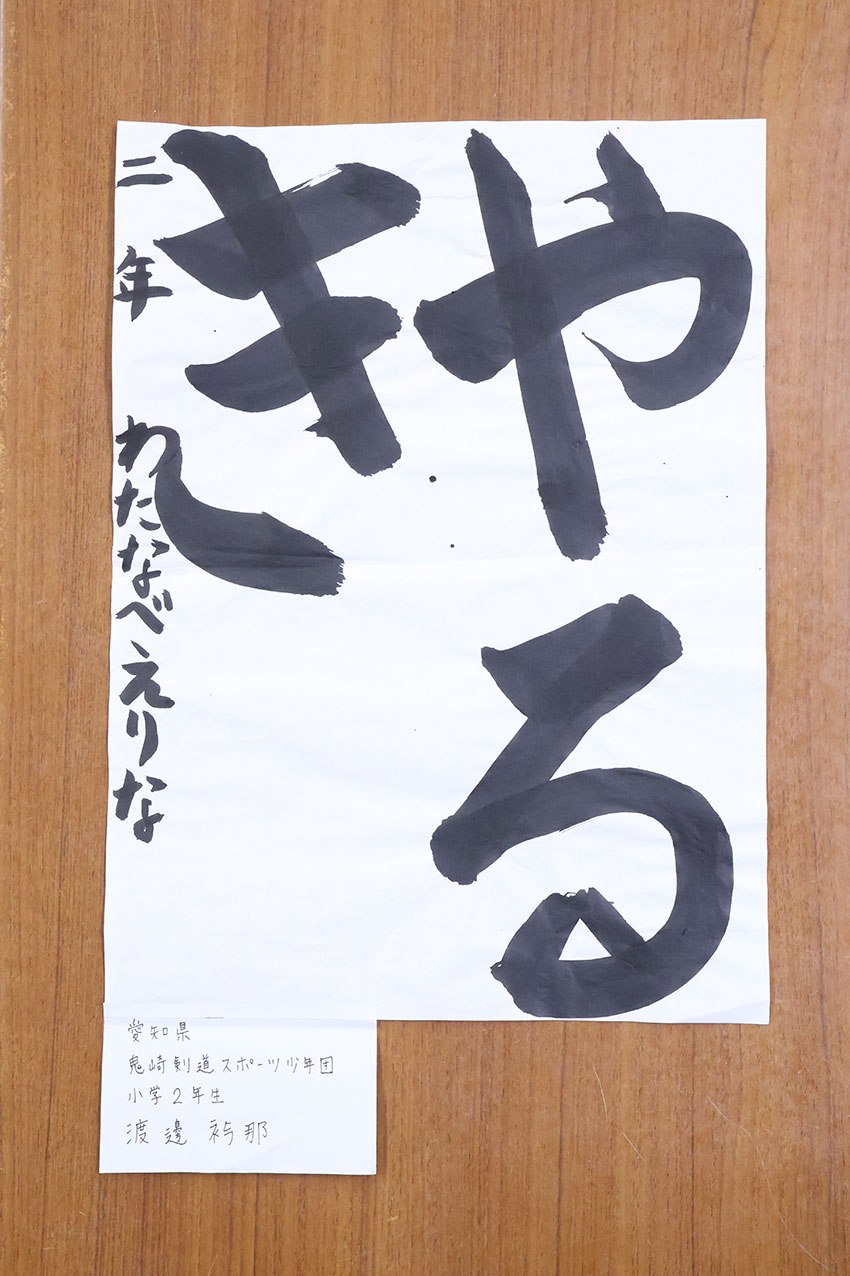 やる
き
二年 わたなべえりな
愛知県
鬼崎剣道スポーツ少年団
小学2年生
渡邊 衿那